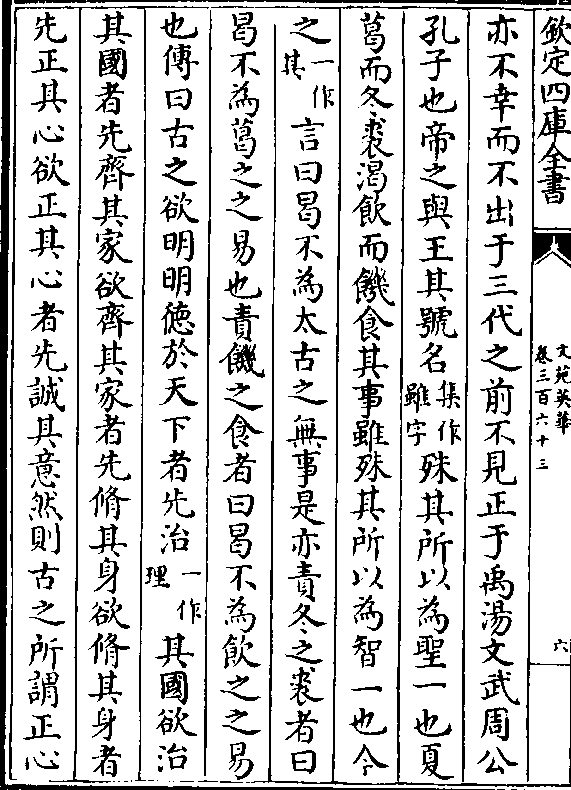 欽定四庫全書
文苑英華
卷三百六十三
六
亦不幸而不出于三代之前不見正于禹湯文武周公
孔子也帝之與王其號名集作雖字殊其所以為聖一也夏
葛而冬裘渴飲而饑食其事雖殊其所以為智一也今
之一作其言曰曷不為太古之無事是亦責冬之裘者曰
曷不為葛之之易也責饑之食者曰曷不為飲之之易
也傳曰古之欲明明徳於天下者先治一作理其國欲治
其國者先齊其家欲齊其家者先脩其身欲脩其身者
先正其心欲正其心者先誠其意然則古之所謂正心